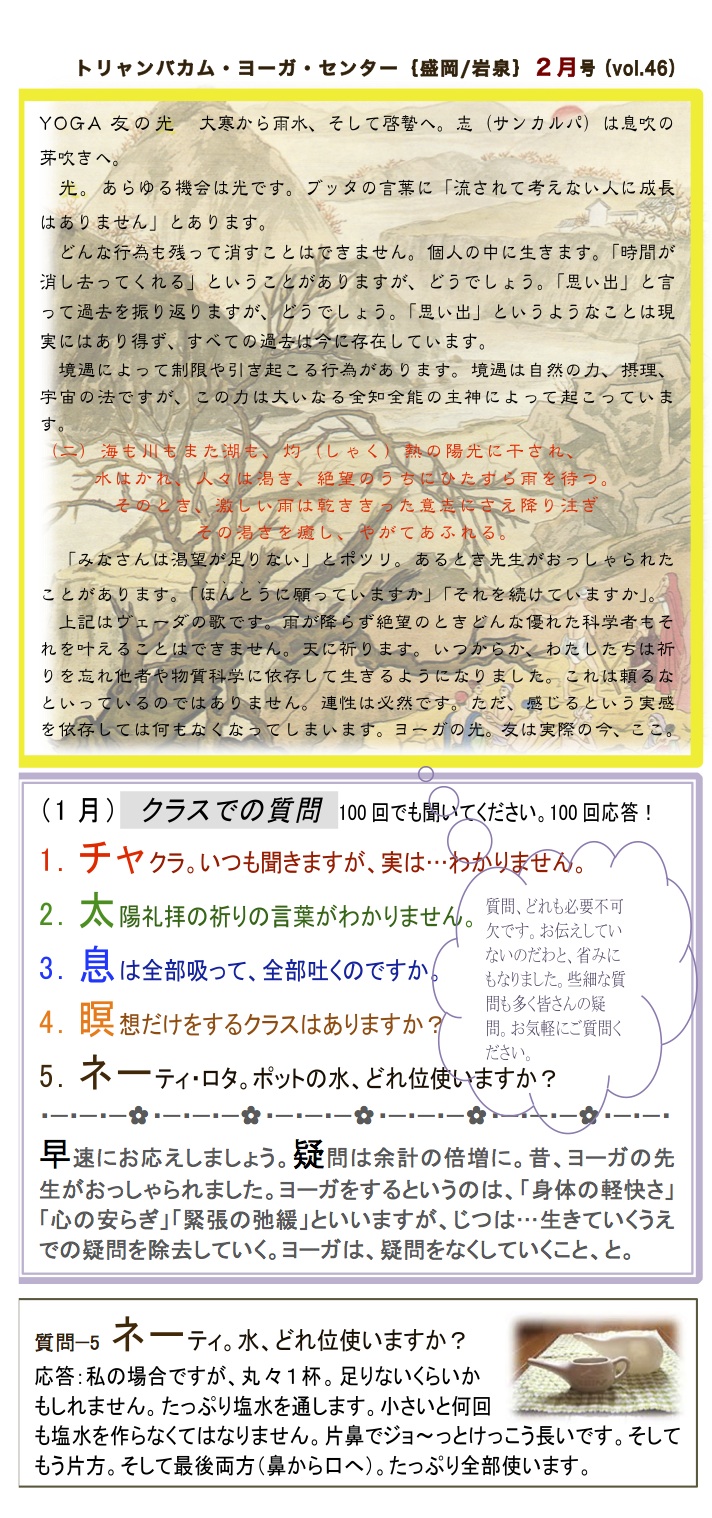 トリャンバカム・ヨーガ・センター｛盛岡/岩泉｝２月号（vol.46）
YOGA 友の光　大寒から雨水、そして啓蟄へ。志（サンカルパ）は息吹の
芽吹きへ。
光。あらゆる機会は光です。ブッタの言葉に「流されて考えない人に成長
はありません」とあります。
どんな行為も残って消すことはできません。個人の中に生きます。「時間が
消し去ってくれる」ということがありますが、どうでしょう。「思い出」と言
って過去を振り返りますが、どうでしょう。「思い出」というようなことは現
実にはあり得ず、すべての過去は今に存在しています。
境遇によって制限や引き起こる行為があります。境遇は自然の力、摂理、
宇宙の法ですが、この力は大いなる全知全能の主神によって起こっていま
す。
（二）海も川もまた湖も、灼（しゃく）熱の陽光に干され、
水はかれ、人々は渇き、絶望のうちにひたすら雨を待つ。
そのとき、激しい雨は乾ききった意志にさえ降り注ぎ
その渇きを癒し、やがてあふれる。
「みなさんは渇望が足りない」とポツリ。あるとき先生がおっしゃられた
ことがあります。「ほんとうに願っていますか」「それを続けていますか」。
上記はヴェーダの歌です。雨が降らず絶望のときどんな優れた科学者もそ
れを叶えることはできません。天に祈ります。いつからか、わたしたちは祈
りを忘れ他者や物質科学に依存して生きるようになりました。これは頼るな
といっているのではありません。連性は必然です。ただ、感じるという実感
を依存しては何もなくなってしまいます。ヨーガの光。友は実際の今、ここ。
（１月）クラスでの質問 100回でも聞いてください。100回応答！
1. チャクラ。いつも聞きますが、実は…わかりません。
2. 太陽礼拝の祈りの言葉がわかりません。
3. 息は全部吸って、全部吐くのですか。
4. 瞑想だけをするクラスはありますか？
5. ネーティ・ロタ。ポットの水、どれ位使いますか？
質問、どれも必要不可
欠です。お伝えしてい
ないのだわと、省みに
もなりました。些細な質
問も多く皆さんの疑
問。お気軽にご質問く
ださい。
早速にお応えしましょう。疑問は余計の倍増に。昔、ヨーガの先
生がおっしゃられました。ヨーガをするというのは、「身体の軽快さ」
「心の安らぎ」「緊張の弛緩」といいますが、じつは…生きていくうえ
での疑問を除去していく。ヨーガは、疑問をなくしていくこと、と。
質問―5 ネーティ。水、どれ位使いますか？
応答：私の場合ですが、丸々１杯。足りないくらいか
もしれません。たっぷり塩水を通します。小さいと何回
も塩水を作らなくてはなりません。片鼻でジョ～っとけっこう長いです。そして
もう片方。そして最後両方（鼻から口へ）。たっぷり全部使います。